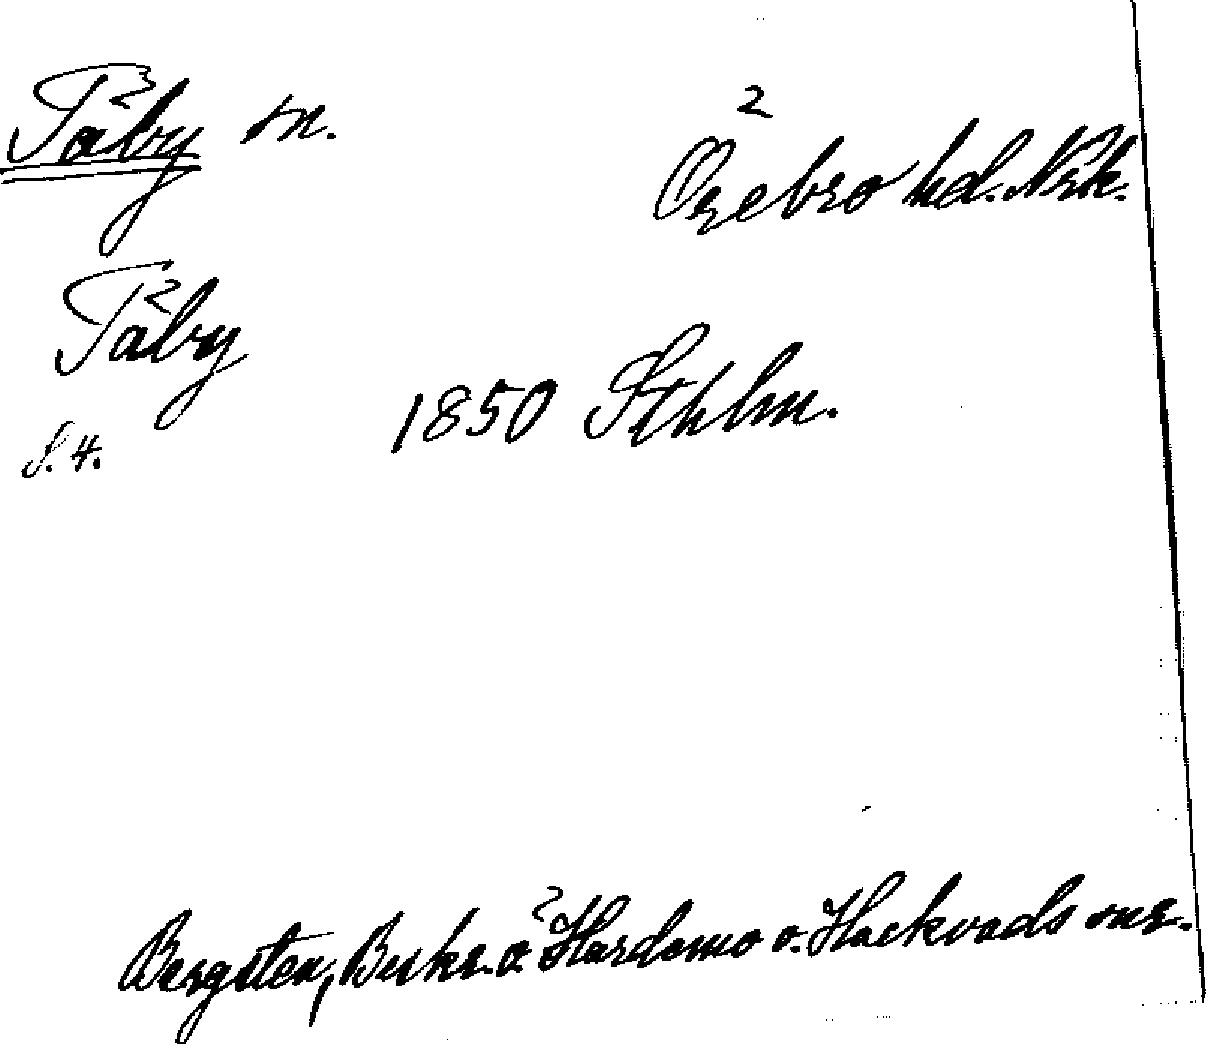 Tåby sn.
Örebro hd. Nrk.
Tåby
S. 4. 1850 Sthlm.
Bergsten, Beskr. ö. Hardemo o. Hackvads snr.